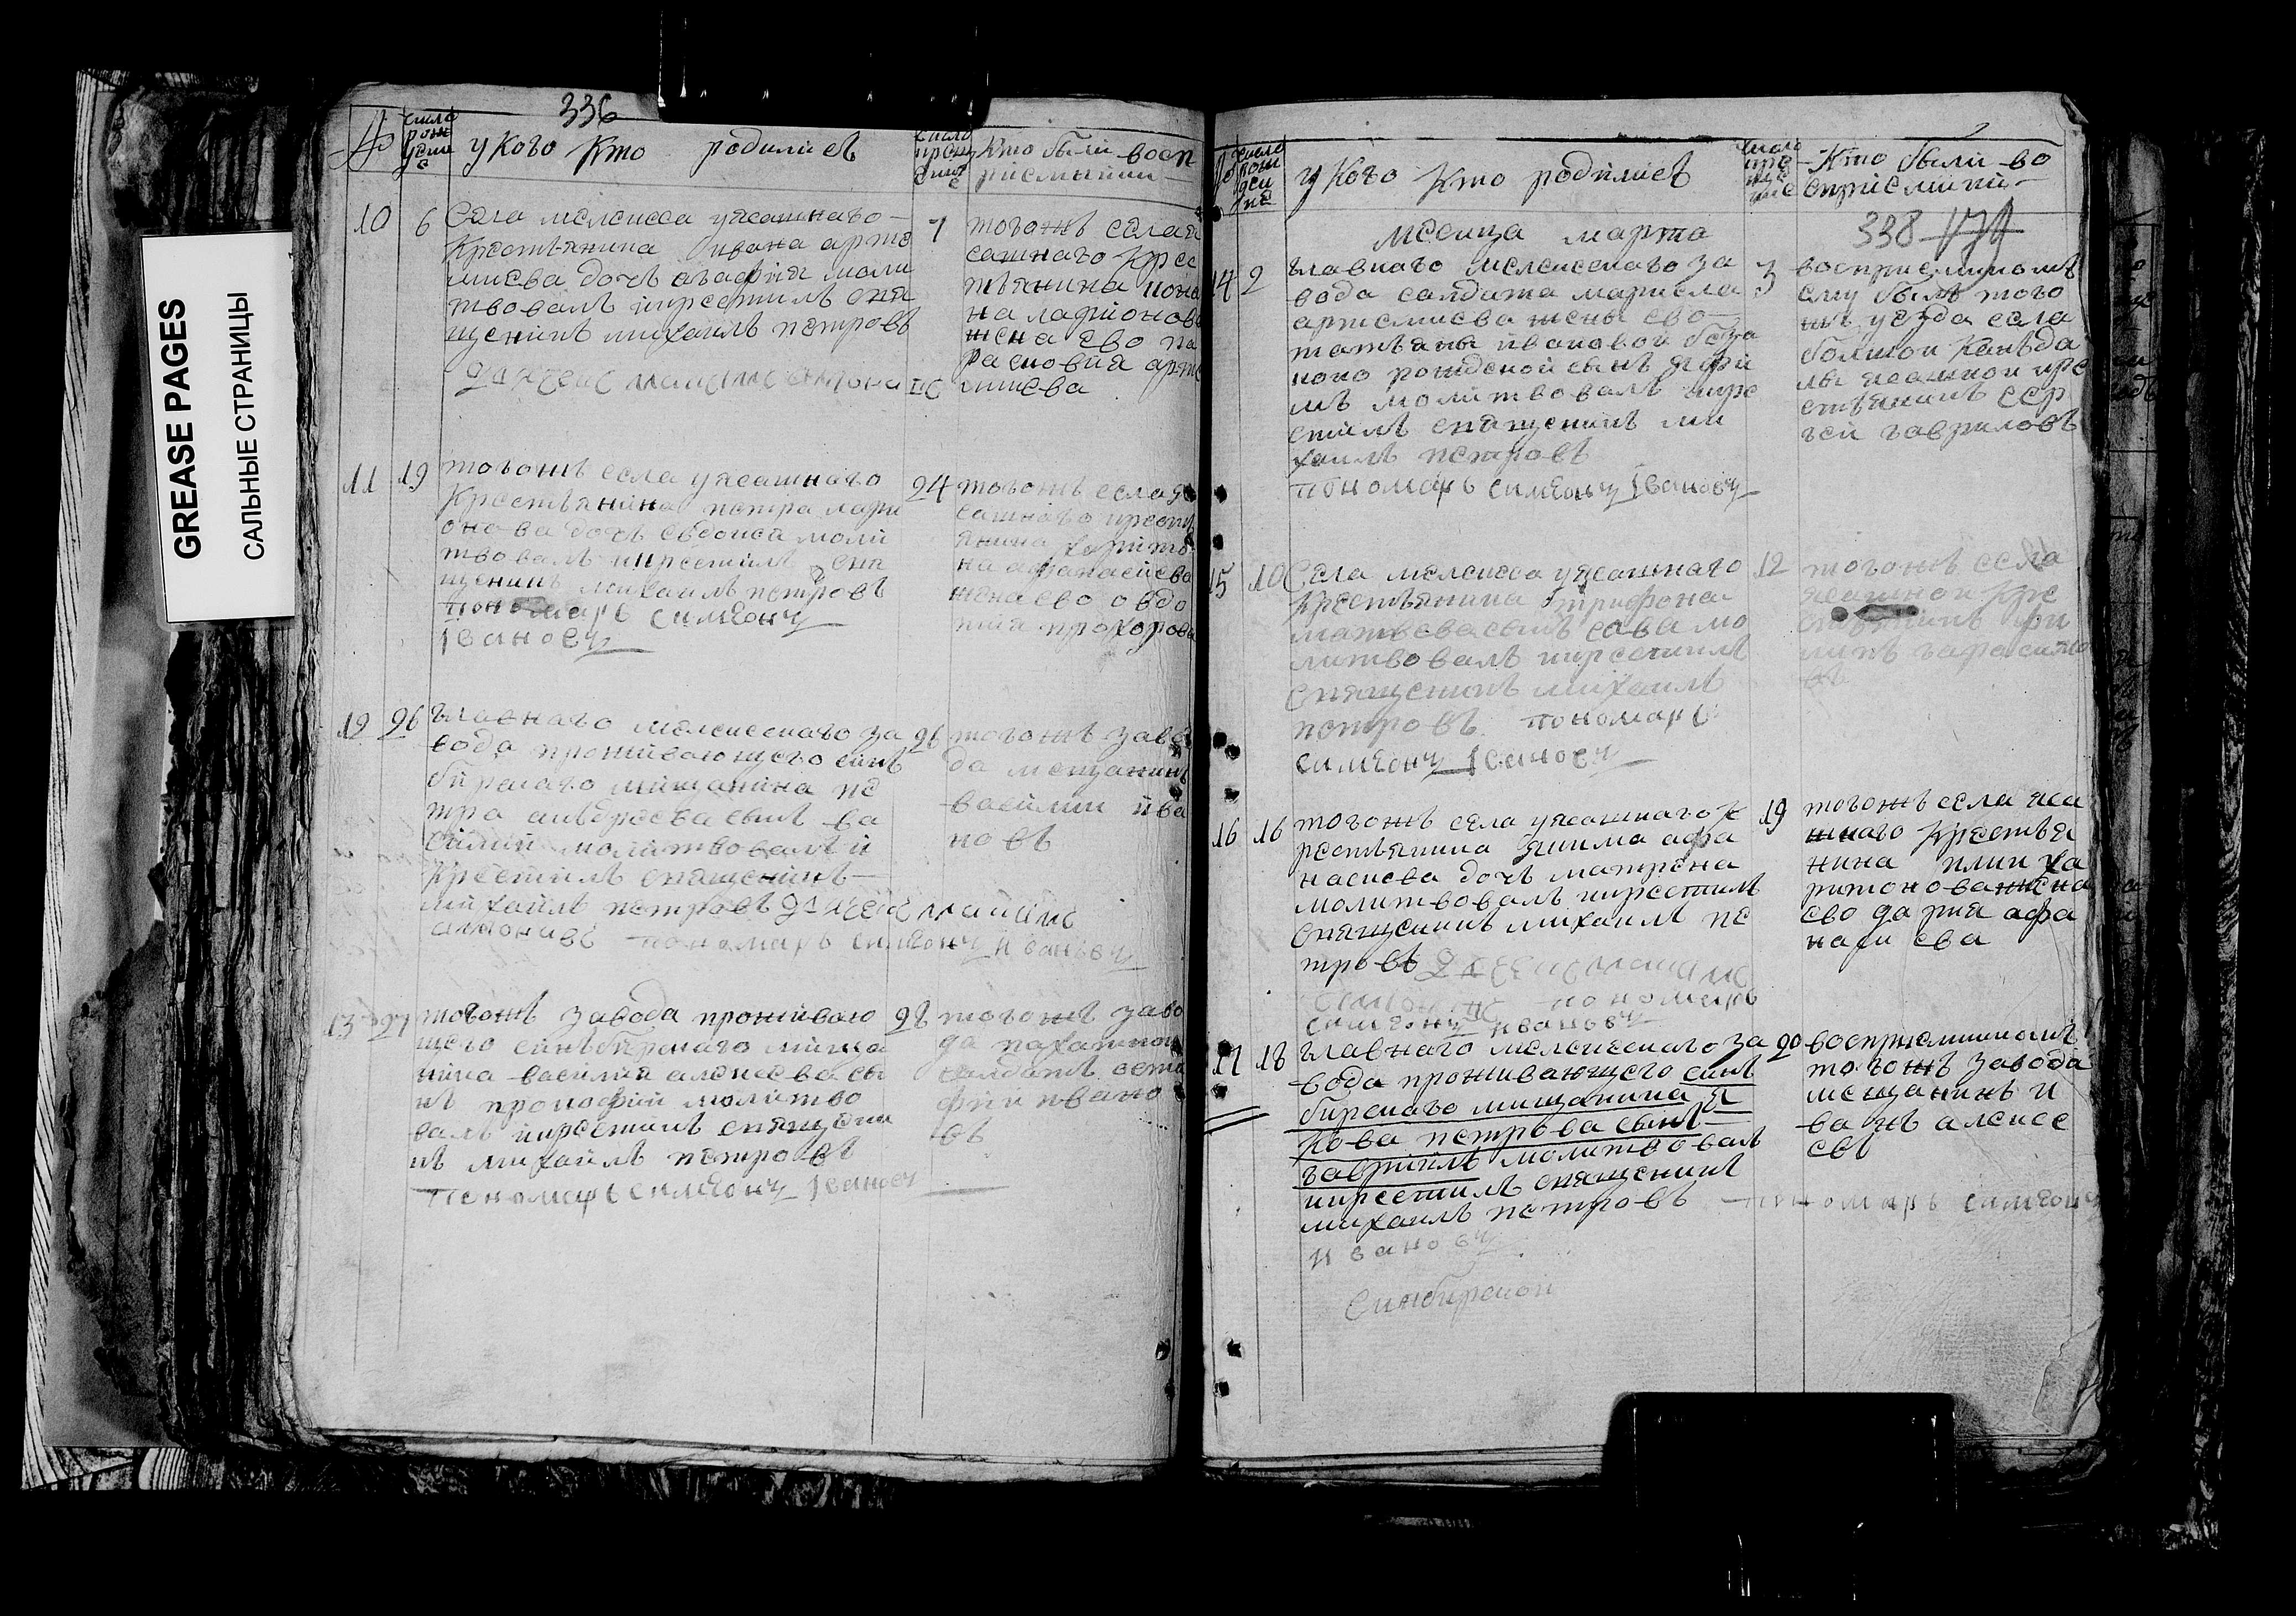 GREASE PAGES
САЛЬНЫЕ СТРАНИЦЫ
336
число рождения
у Кого Кто родился
число крещения
Кто были восприемники
10
6
Села мелекеса у ясашнаго
Крестьянина Ивана арте
миева дочь агафия моли
твовалъ икрестилъ свя
щеникъ михаилъ петровъ
7
тогожъ села я
сашнаго крес
тьянина
на ларионов
жена ево па
расковия арте
миева
11
19
тогожъ села у ясашнаго
Крестьянина петра лари
онова дочь евдокея моли
твовалъ икрестилъ свя
щеникъ михаилъ петровъ
пономарь симеонъ
Iвановъ
24
тогожъ села я
сашнаго крест
янина харито
на афанасиева
жена ево овдо
тия прохорова
12
26
главнаго мелекескаго за
вода проживающего синъ
бирскаго мищанина пе
тра андреева сынъ ва
силий молитвовалъ и
крестилъ священикъ
михаилъ петровъ
пономарь симеонъ Ивановъ
26
тогожъ заво
да мещанинъ
василий ива
новъ
13
27
тогожъ завода проживаю
щего синъбирскаго мища
нина василия алексева сы
нъ прокофий молитво
валъ икрестилъ священи
къ михаилъ петровъ
пономарь симеонъ Iвановъ
28
тогожъ заво
да пахатной
салдатъ
ивано
въ
у Кого Кто родился
Кто были во
сприемники
месеца марта
338
14
2
главнаго мелекескаго за
вода салдата маркела
артемиева жены ево
татьяны ивановой беза
коно рожденой сынъ яфи
мъ молитвовалъ икре
стилъ священикъ ми
хаилъ петровъ
пономарь симеонъ Iвановъ
3
восприемникомъ
ему былъ того
жъ уезда села
болшой Каньда
лы ясашной кре
стьянинъ сер
гей гавриловъ
15
10
Села мелекеса у ясашнаго
крестьянина трифона
матвева сынъ сава мо
литвовалъ икрестилъ
священикъ михаилъ
петровъ пономарь
симеонъ Iвановъ
12
тогожъ села
ясашной кре
стьянинъ фи
липъ
въ
16
16
тогожъ села у ясашнаго к
рестьянина якима афа
насиева дочь матрена
молитвовалъ икрестилъ
священикъ михаилъ пе
тровъ
пономарь
симеонъ ивановъ
19
тогожъ села яса
шнаго крестья
нина ха
ритонова жена
ево дария афа
насиева
17
18
главнаго мелекескаго за
вода проживающего синъ
бирскаго мищанина я
кова петрова сынъ
гаврийлъ молитвовалъ
икрестилъ священикъ
михаилъ петровъ
пономарь симеонъ
ивановъ
20
восприемникомъ
тогожъ завода
мещанинъ и
ванъ алексе
евъ
Синбирской